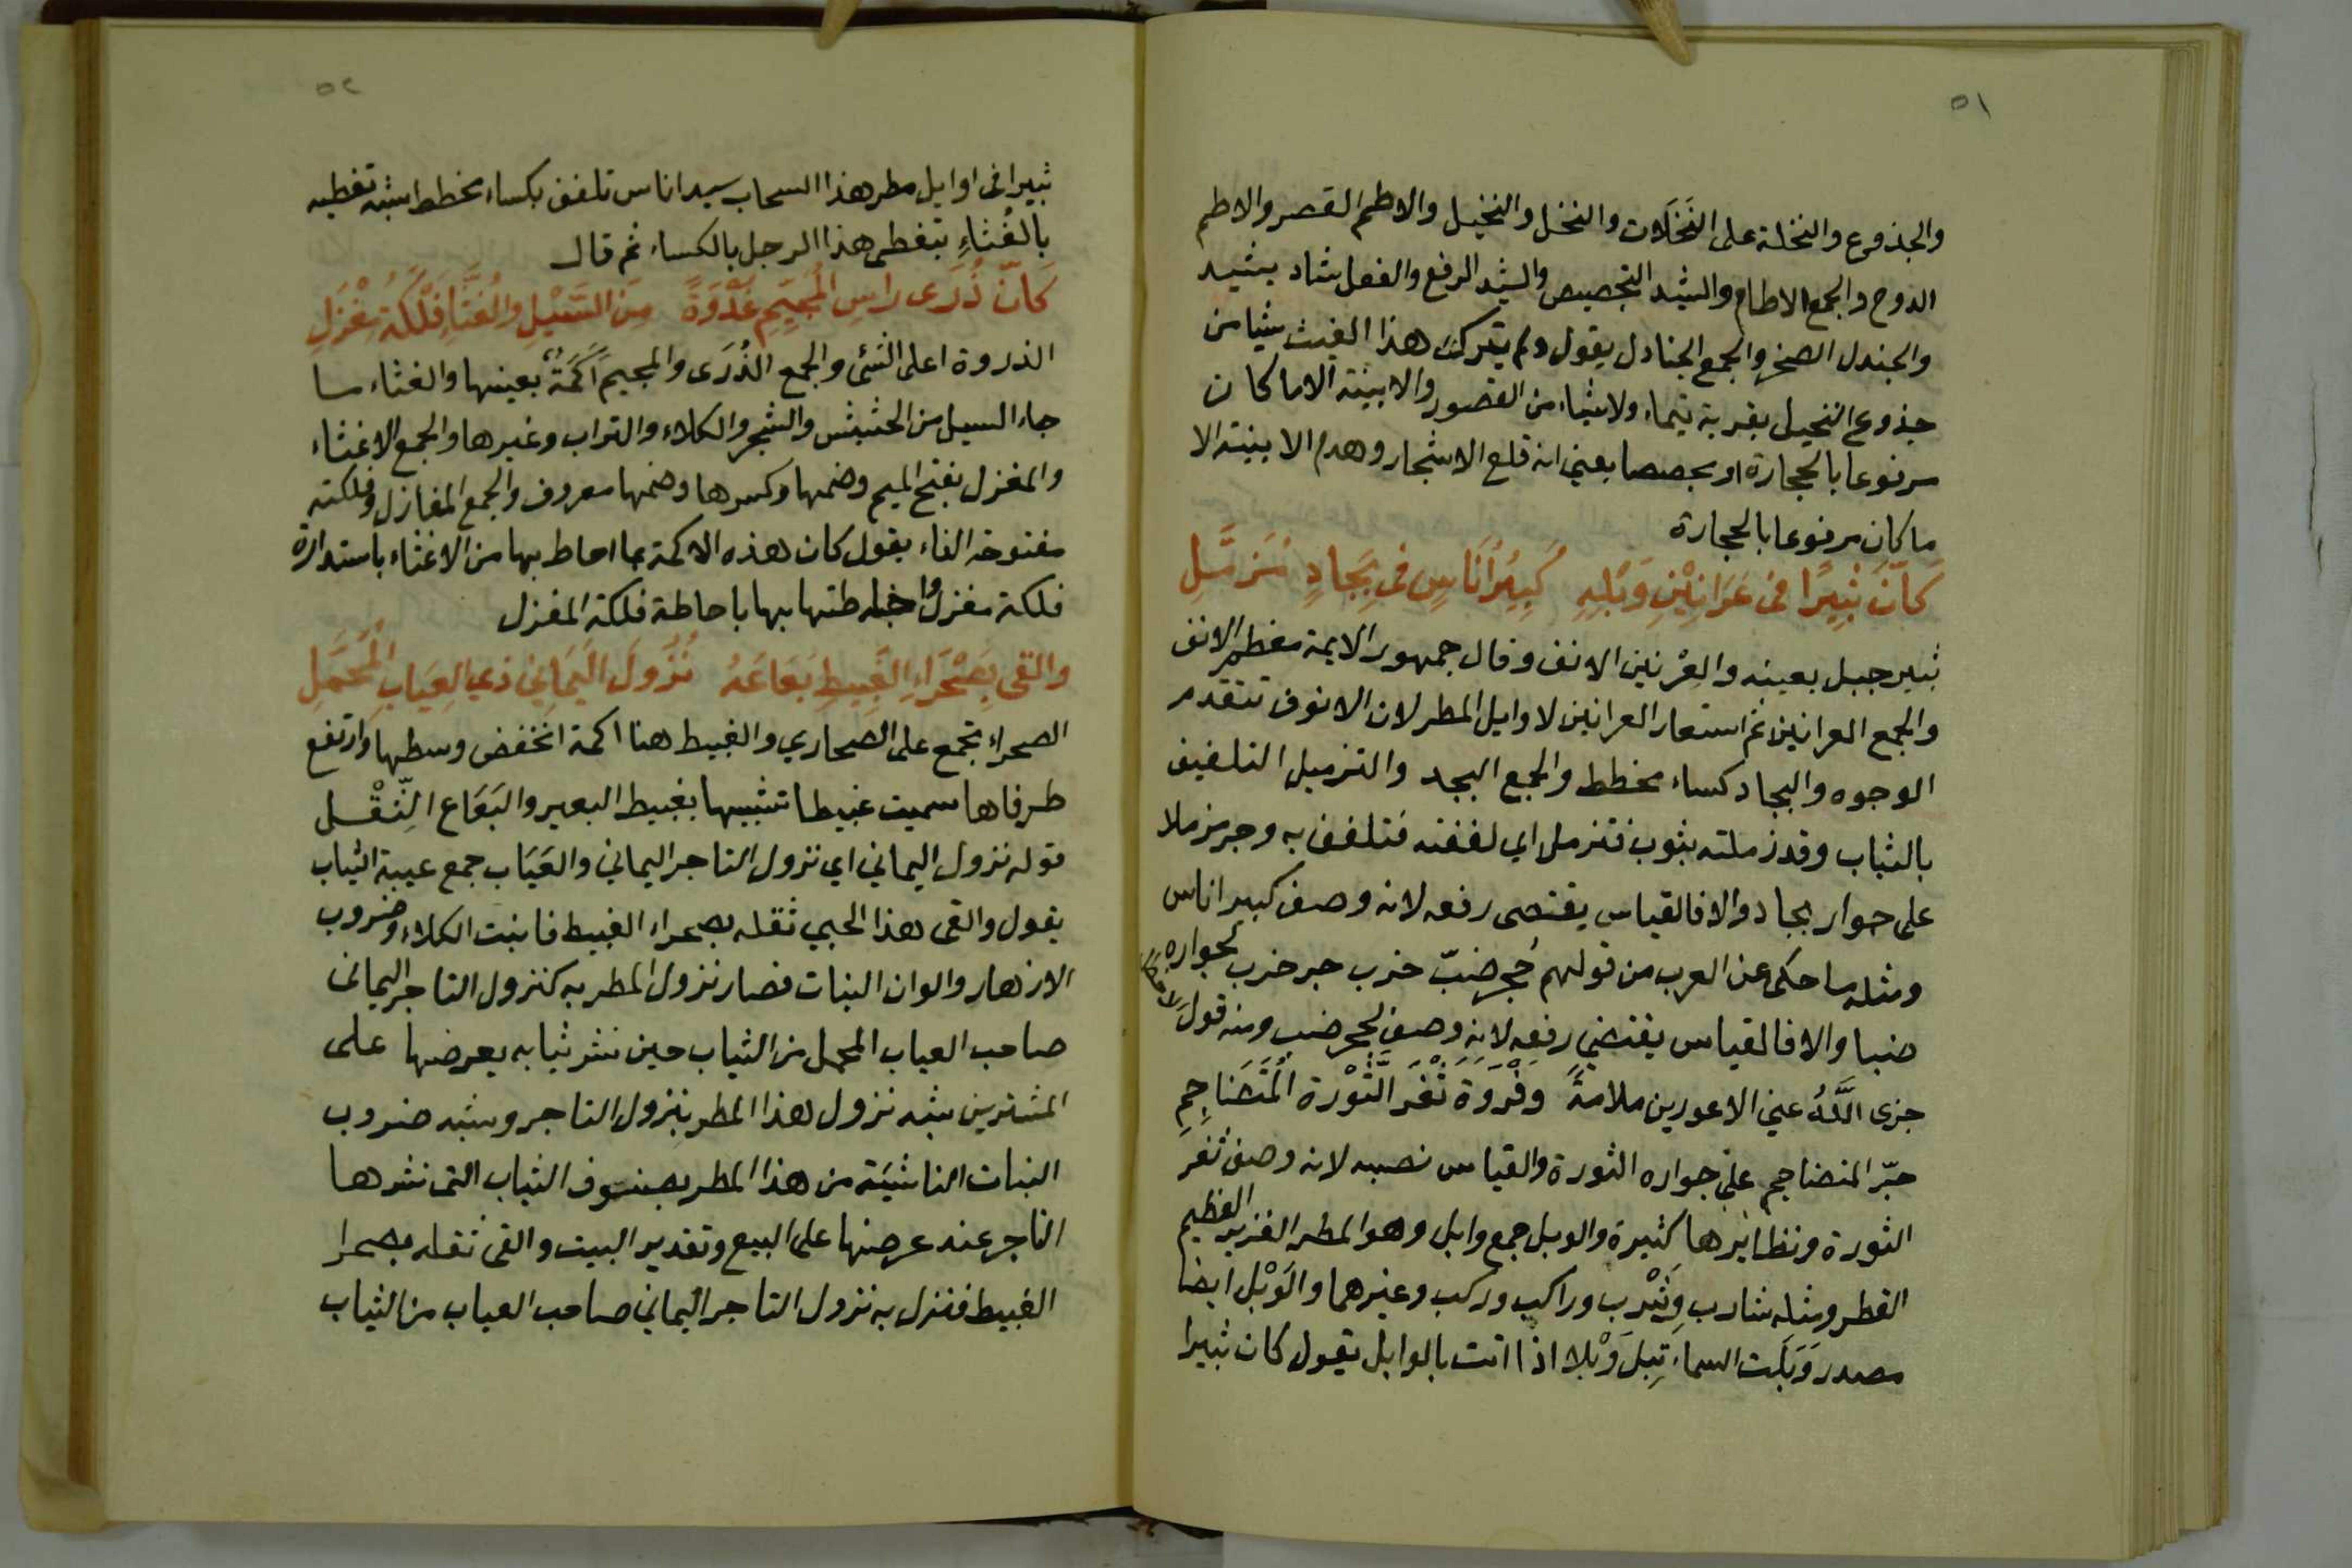 ٥١
والجذوع والنخلة على النَخَلَات والنخل والنخيل والاطم القصر والاطم
الدوح والجمع الاطام والشيد التجصيص والشيد الرفع والفعل شاد يشيد
والجندل الصخر والجمع الجنادل يقول ولم يترك هذا الغيث شيا من
جذوع النخيل بقرية تيماء ولا شياء من القصور والابينة الا ما كان
مرفوعا بالحجارة او مجصصا يعني انه قلع الاشجار وهدم الابينة الا
ما كان مرفوعا بالحجارة
كَاَنَّ ثَبِيرًا فى عَرَانِيْنِ وَبْلِهِ كَبِيْرُ اُنَاسٍ فى بِجَادٍ مُزَمَّلِ
ثبير جبل بعينه والعِرْنين الانف وقال جمهور الايمة معظم الانف
والجمع العرانين ثم استعار العرانين لاوايل المطر لان الانوف تتقدم
الوجوه والبجاد كساء مخطط والجمع البجد والتزميل التلفيف
بالثياب وقد زملته بثوب فتزمل اي لففته فتلفف به وجر مزملا
على جوار بجاد والا فالقياس يقتضى رفعه لانه وصف كبير اناس
ومثله ما حكى عن العرب من قولهم جُحر ضبّ خرب جر خرب لجواره
ضبا والا فالقياس يقتضي رفعه لانه وصف لجحر ضب ومنه قول
جزى اللَّهُ عني الاعورين ملامةً وَفَرْوَةَ ثَغْرَ الثَّوْرة المُتَضَاجِمِ
جرّ المتضاجم على جواره الثورة والقياس نصبه لانه وصف ثغر
الثورة ونظايرها كثيرة والوبل جمع وابل وهو المطر الغزير العظيم
القطر ومثله شارب وشَرْب وراكب وركب وغيرهما والوَبْل ايضا
مصدر وَبَلَت السماء تَبِلَ وَبْلا اذا اتت بالوابل يقول كان ثبيرا
٥٢
ثبيرا فى اوايل مطر هذا السحاب سيد اناس تلفف بكساء مخطط شبه تغطيه
بالغُثاءِ بتغطى هذا الرجل بالكساء ثم قال
كَاَنّ ذُرَى رَاسِ المُجَيمِرِ غُدْوَةً مِنَ السَّيْلِ والغُثَّاءِ فَلْكَةُ مِغْزَلِ
الذروة اعلى الشئ والجمع الذُرَى والمجيمر اَكَمَةٌ بعينها والغثاء ما
جاء السيل من الحشيش والشجر والكلاء والتراب وغيرها والجمع الاغثاء
والمغزل بفتح الميم وضمها وكسرها وضمها معروف والجمع المغازل وفلكته
مفتوحة الفاء يقول كان هذه الاكمة مما احاط بها من الاغثاء باستدارة
فلكة مغزل طتها بها باحاطة فلكة المغزل
والقى بِصَحْرَاءِ الغَبِيطِ بَعَاعَهُ نُزُولَ اليَمَانِي ذي العِيَابِ المُحَمَّلِ
الصحراء تجمع على الصحاري والغبيط هنا اكمة انخفض وسطها وارتفع
طرفاها سميت غبيطا تشبيها بغبيط البعير والبَعَاع الثِّقْل
قوله نزول اليماني اي نزول التاجر اليماني والعيَاب جمع عيبة الثياب
يقول والقى هذا الحبي ثقله بصحراء الغبيط فانبت الكلاء وضروب
الازهار والوان النبات فصار نزول المطر به كنزول التاجر اليمانى
صاحب العياب المحمل من الثياب حين نشر ثيابه يعرضها على
المشترين شبه نزول هذا المطر بنزول التاجر وشبه ضروب
النبات الناشئة من هذا المطر بصنوف الثياب التى نشرها
التاجر عند عرضها على البيع وتقدير البيت والقى ثقله بصحرا
الغبيط فنزل به نزول التاجر اليماني صاحب العياب من الثياب